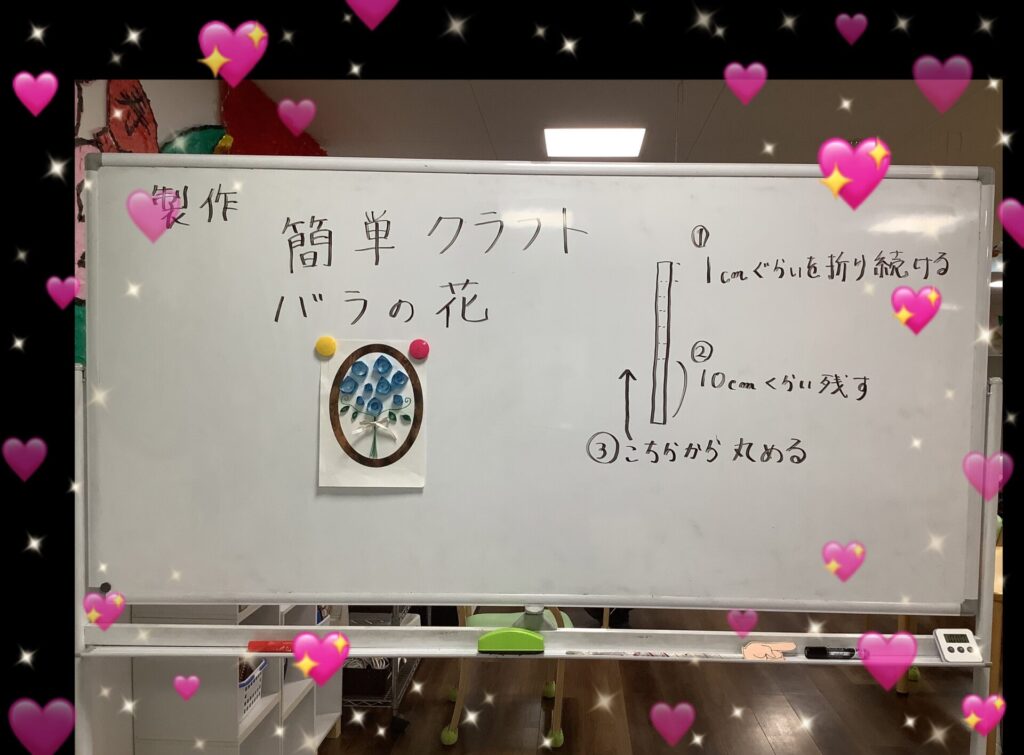 製作
簡単クラフト
バラの花
①
1cmぐらいを折り続ける
②
10cmくらい残す
③こちらから丸める